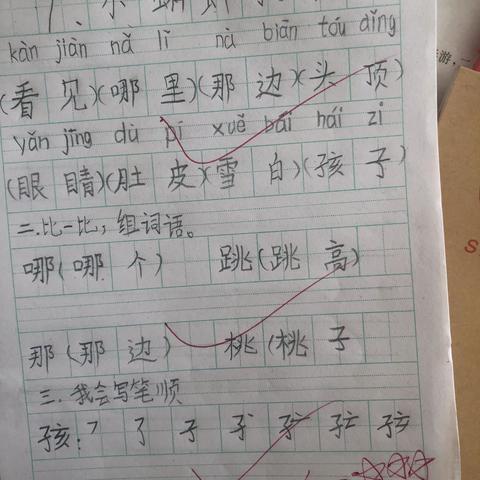 kàn jiàn nǎ lǐ nà biān tóu dǐng
(看 见)(哪 里)(那 边)(头 顶)
yǎn jīng dù pí xuě bái hái zi
(眼 睛)(肚 皮)(雪 白)(孩 子)
二.比一比,组词语。
哪(哪 个) 跳(跳 高)
那(那 边) 桃(桃 子
三.我会写笔顺
孩: